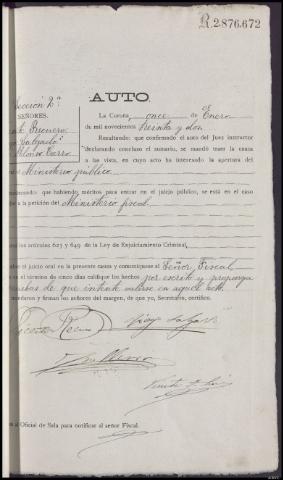 R.2876.672
AUTO.
Sección 2ª
SEÑORES.
La Coruña, once de Enero
de mil novecientos treinta y dos
Resultando: que confirmado el auto del Juez instructor
declarando concluso el sumario, se mandó traer la causa
a la vista, en cuyo acto ha interesado la apertura del
Ministerio público
que habiendo méritos para entrar en el juicio público, se está en el caso
a la petición del Ministerio fiscal
los artículos 627 y 649 de la Ley de Enjuiciamiento Criminal,
el juicio oral en la presente causa y comuníquese al Señor Fiscal
el término de cinco días califique los hechos por escrito y proponga
pruebas de que intente valerse en aquel acto.
acordaron y firman los señores del margen, de que yo, Secretario, certifico.
al Oficial de Sala para notificar al señor Fiscal.